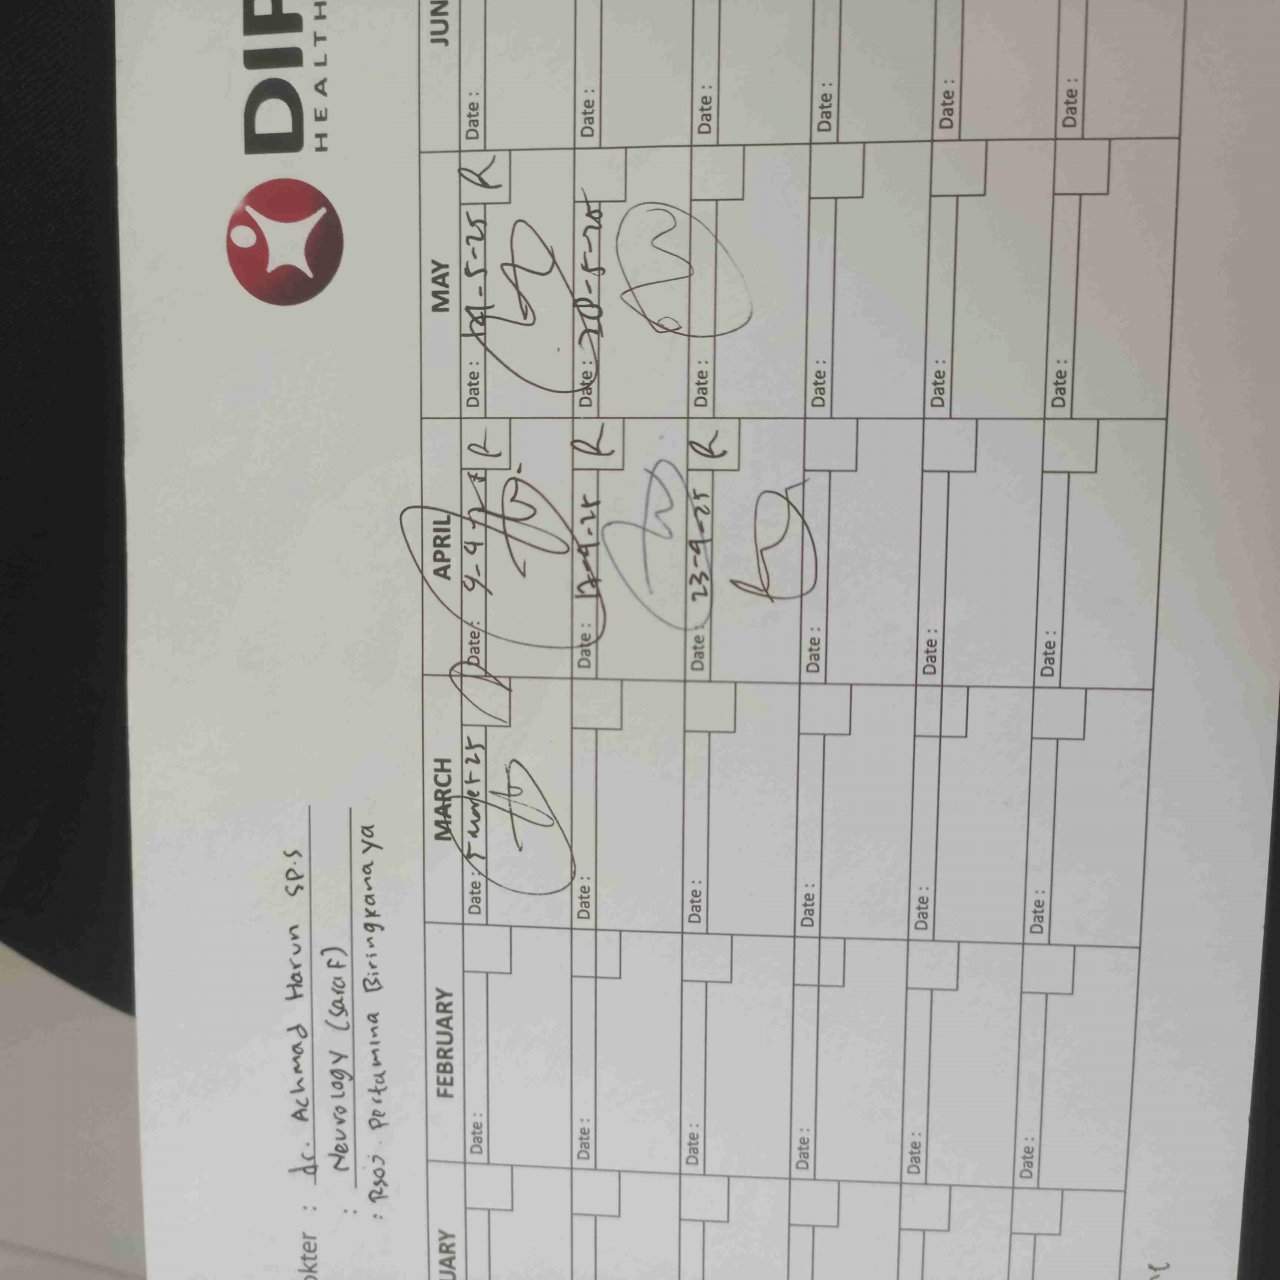 DIP
HEALTH
okter : dr. Achmad Harun SP.S
: Neurology (saraf)
: Rsoj. Pertamina Biringkanaya
UARY FEBRUARY MARCH APRIL MAY JUN
Date : Date : 5 maret 25 Date : 9-4-25 R Date : -5-25 R Date :
Date : Date : Date : -25 R Date : 20-5-25 Date :
Date : Date : Date : 23-4-25 R Date : Date :
Date : Date : Date : Date : Date :
Date : Date : Date : Date : Date :
Date : Date : Date : Date : Date :